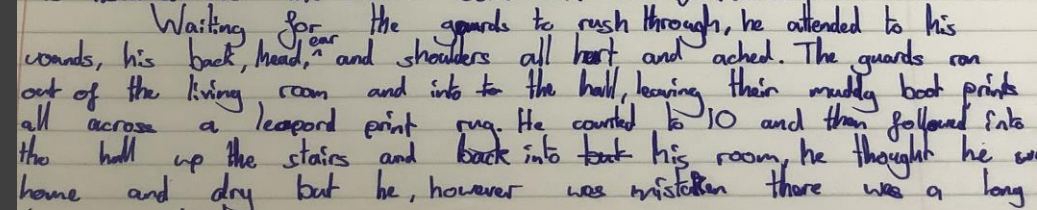 Waiting for the guards to rush through, he attended to his
wounds, his back, head, ear and shoulders all hurt and ached. The guards ran
out of the living room and into to the hall, leaving their muddy boot prints
all across a leapord print rug. He counted to 10 and then followed into
the hall up the stairs and back into his room, he thought he
home and dry but he, however was mistaken there was a long